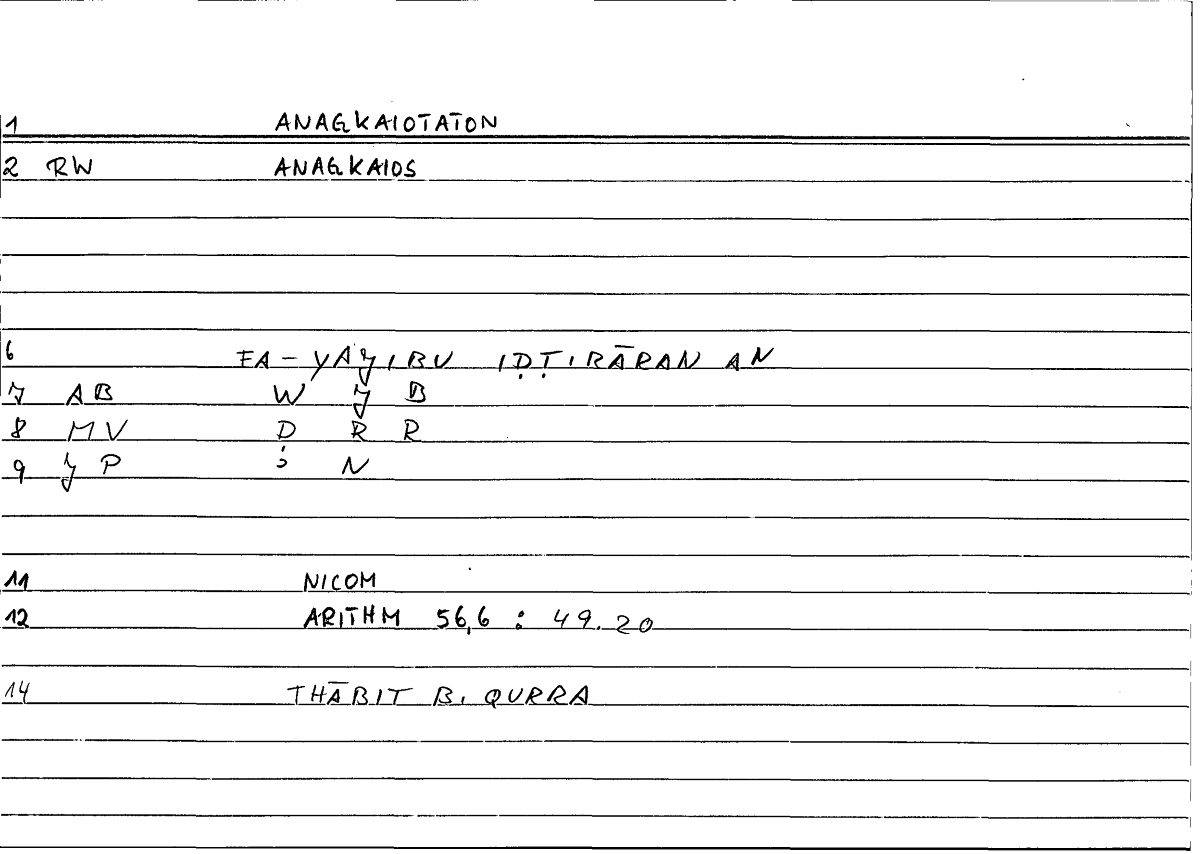 1 ANAGKAIOTATON
2 RW ANAGKAIOS
6 FA-YAJIBU IḌṬIRĀRAN AN
7 AB W J B
8 MV Ḍ R R
9 JP N
11 NICOM
12 ARITHM 56,6 : 49.20
14 THĀBIT B. QURRA